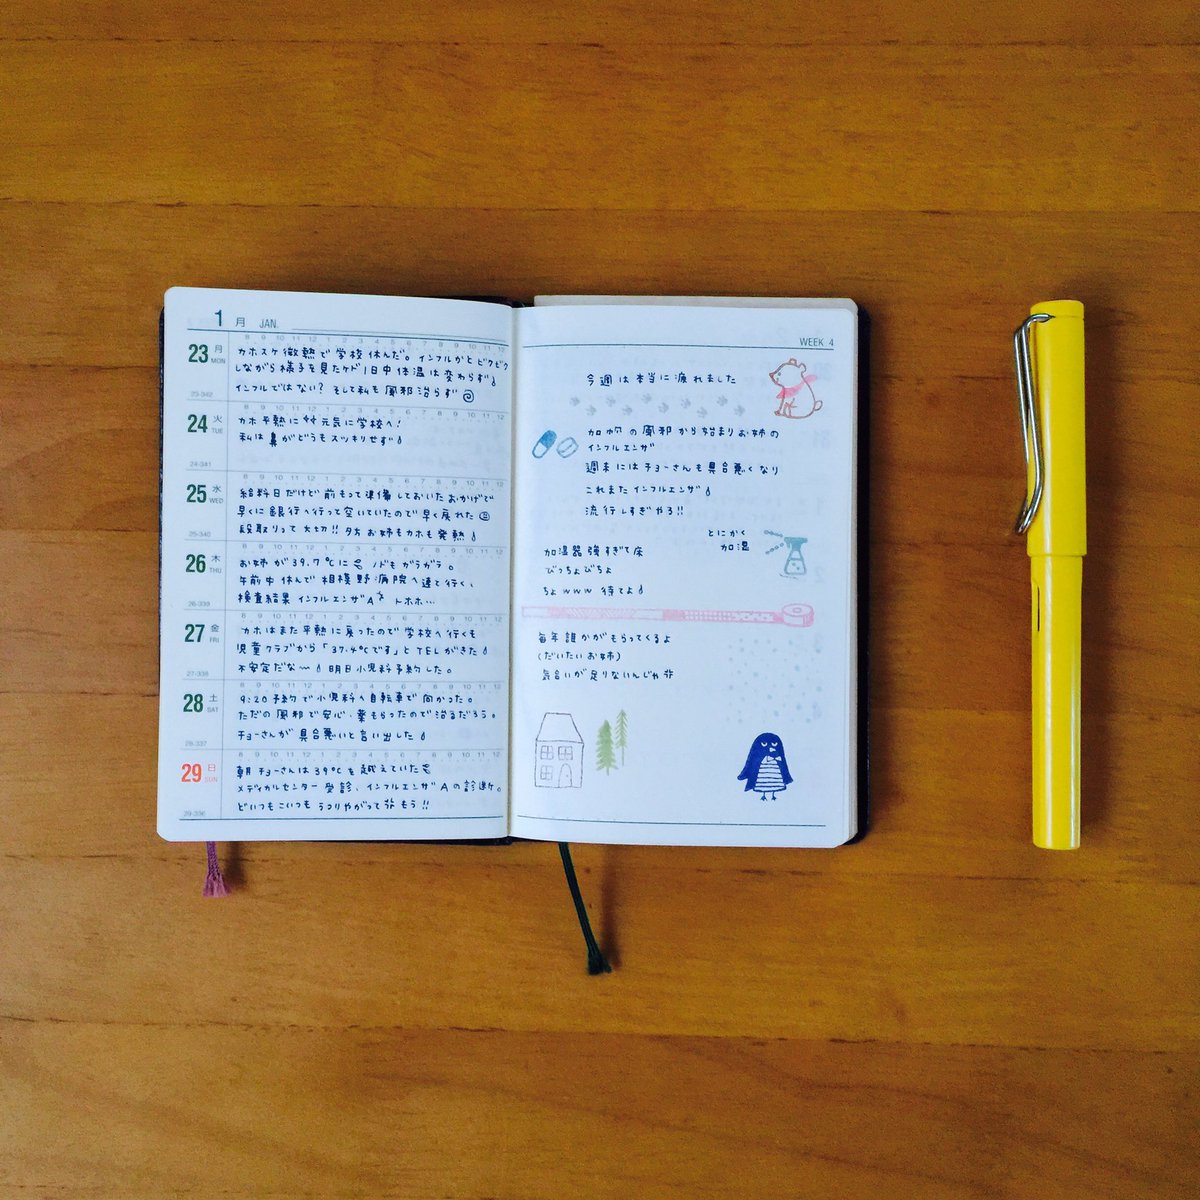 1 月 JAN.
8 9 10 11 12 1 2 3 4 5 6 7 8 9 10 11 12
23 月 MON
カホスケ微熱で学校休んだ。インフルかとビクビク
しながら様子を見たケド1日中体温は変わらず
インフルではない? そして私も風邪治らず
23-342
24 火 TUE
カホ平熱に 元気に学校へ!
私は鼻がどうもスッキリせず
24-341
25 水 WED
給料日だけど前もって準備しておいたおかげで
早くに銀行へ行って空いていたので早く戻れた
段取りって大切!! 夕方お姉もカホも発熱
25-340
26 木 THU
お姉が39.7℃に ノドもガラガラ。
午前中休んで相模野病院へ連れて行く、
検査結果インフルエンザA トホホ…
26-339
27 金 FRI
カホはまた平熱に戻ったので学校へ行くも
児童クラブから「37.4℃です」とTELがきた
不安定だな〜 明日小児科予約した。
27-338
28 土 SAT
9:20予約で小児科へ自転車で向かった。
ただの風邪で安心、薬もらったので治るだろう。
チョーさんが具合悪いと言い出した
28-337
29 日 SUN
朝チョーさんは39℃を越えていた
メディカルセンター受診、インフルエンザAの診断。
どいつもこいつもうつりやがって もう!!
29-336
WEEK 4
今週は本当に疲れました
の風邪から始まりお姉の
インフルエンザ
週末にはチョーさんも具合悪くなり
これまたインフルエンザ
流行しすぎやろ!!
とにかく
加湿
加湿器強すぎて床
びっちょびちょ
ちょwww 待てよ
毎年誰かがもらってくるよ
(だいたいお姉)
気合いが足りないんじゃ